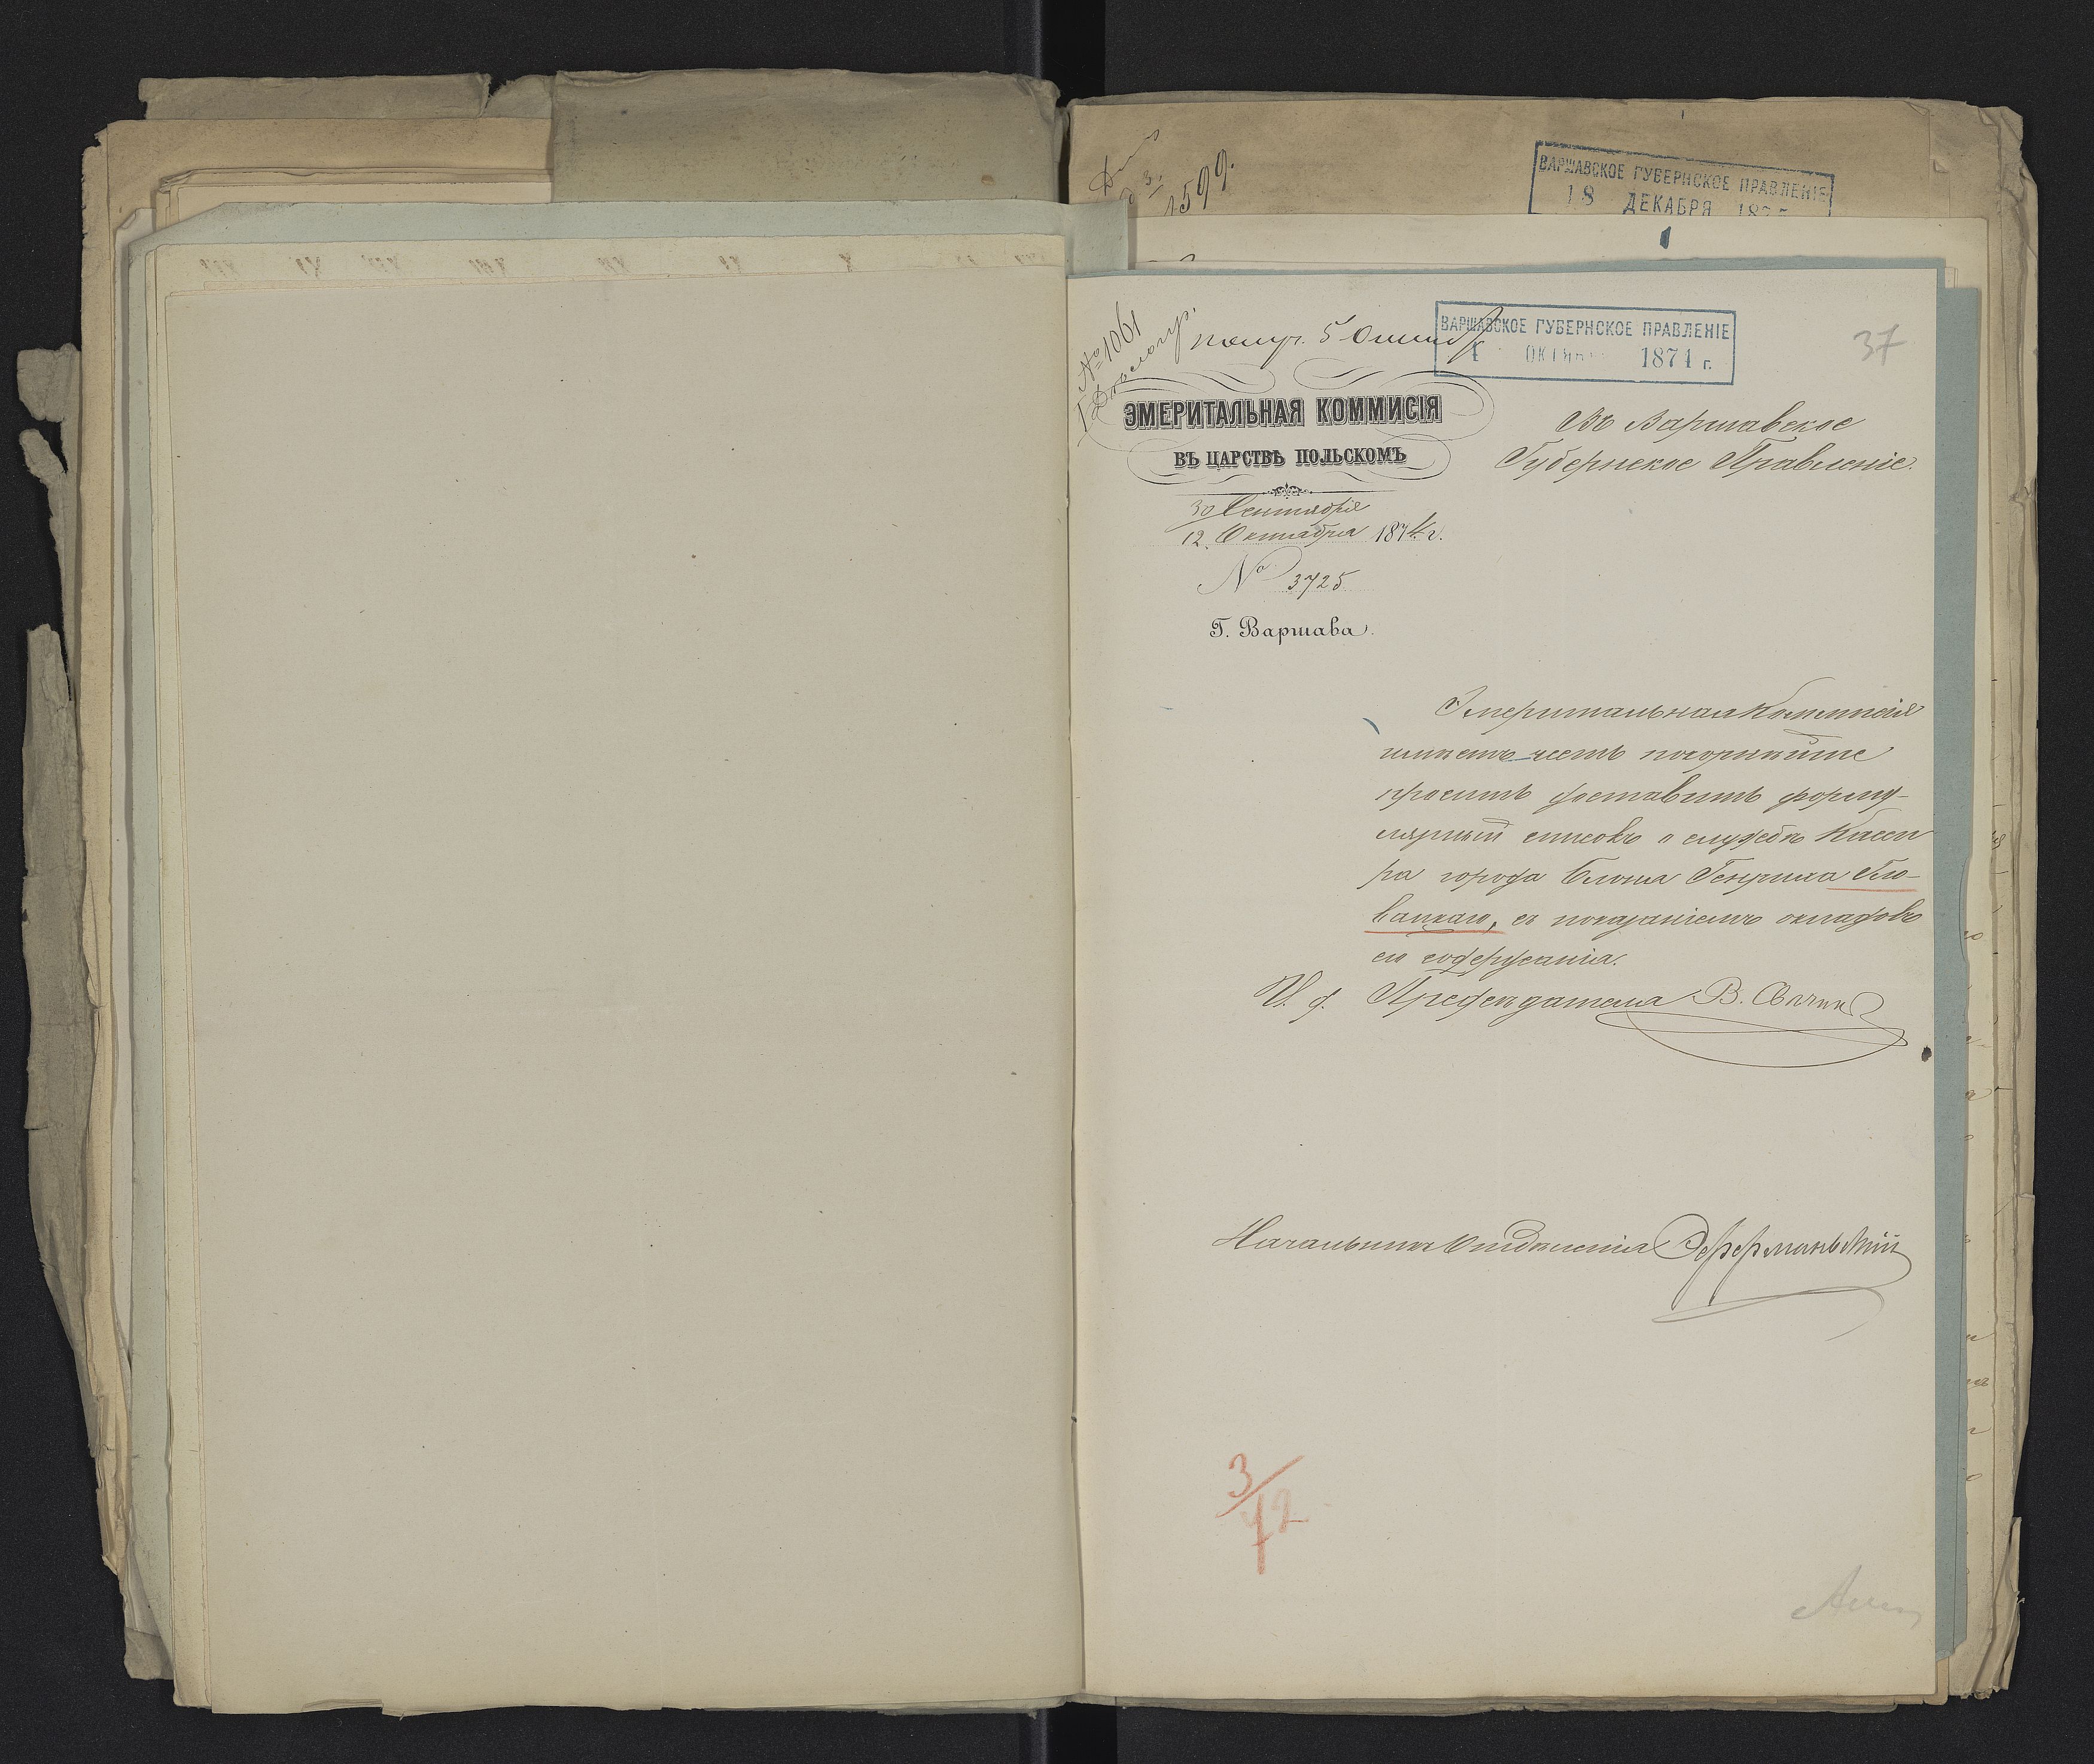 1599.
ВАРШАВСКОЕ ГУБЕРНСКОЕ ПРАВЛЕНІЕ
18 ДЕКАБРЯ 1875
№ 1061
получ. 5 Октяб
ВАРШАВСКОЕ ГУБЕРНСКОЕ ПРАВЛЕНІЕ
4 ОКТЯБ 1874 г.
37
ЭМЕРИТАЛЬНАЯ КОММИСІЯ
ВЪ ЦАРСТВѢ ПОЛЬСКОМЪ
30 Сентября
12 Октября 1874 г.
№ 3725
Г. Варшава.
Въ Варшавское
Губернское Правленіе.
Эмеритальная Коммисія
имѣетъ честь покорнѣйше
просить доставить форму-
лярный списокъ о службѣ Касси
ра города Блоня Генриха Гло-
вацкаго, съ показаніемъ окладовъ
его содержанія.
И. д. Предсѣдателя В.
Начальникъ Отдѣленія
3/42